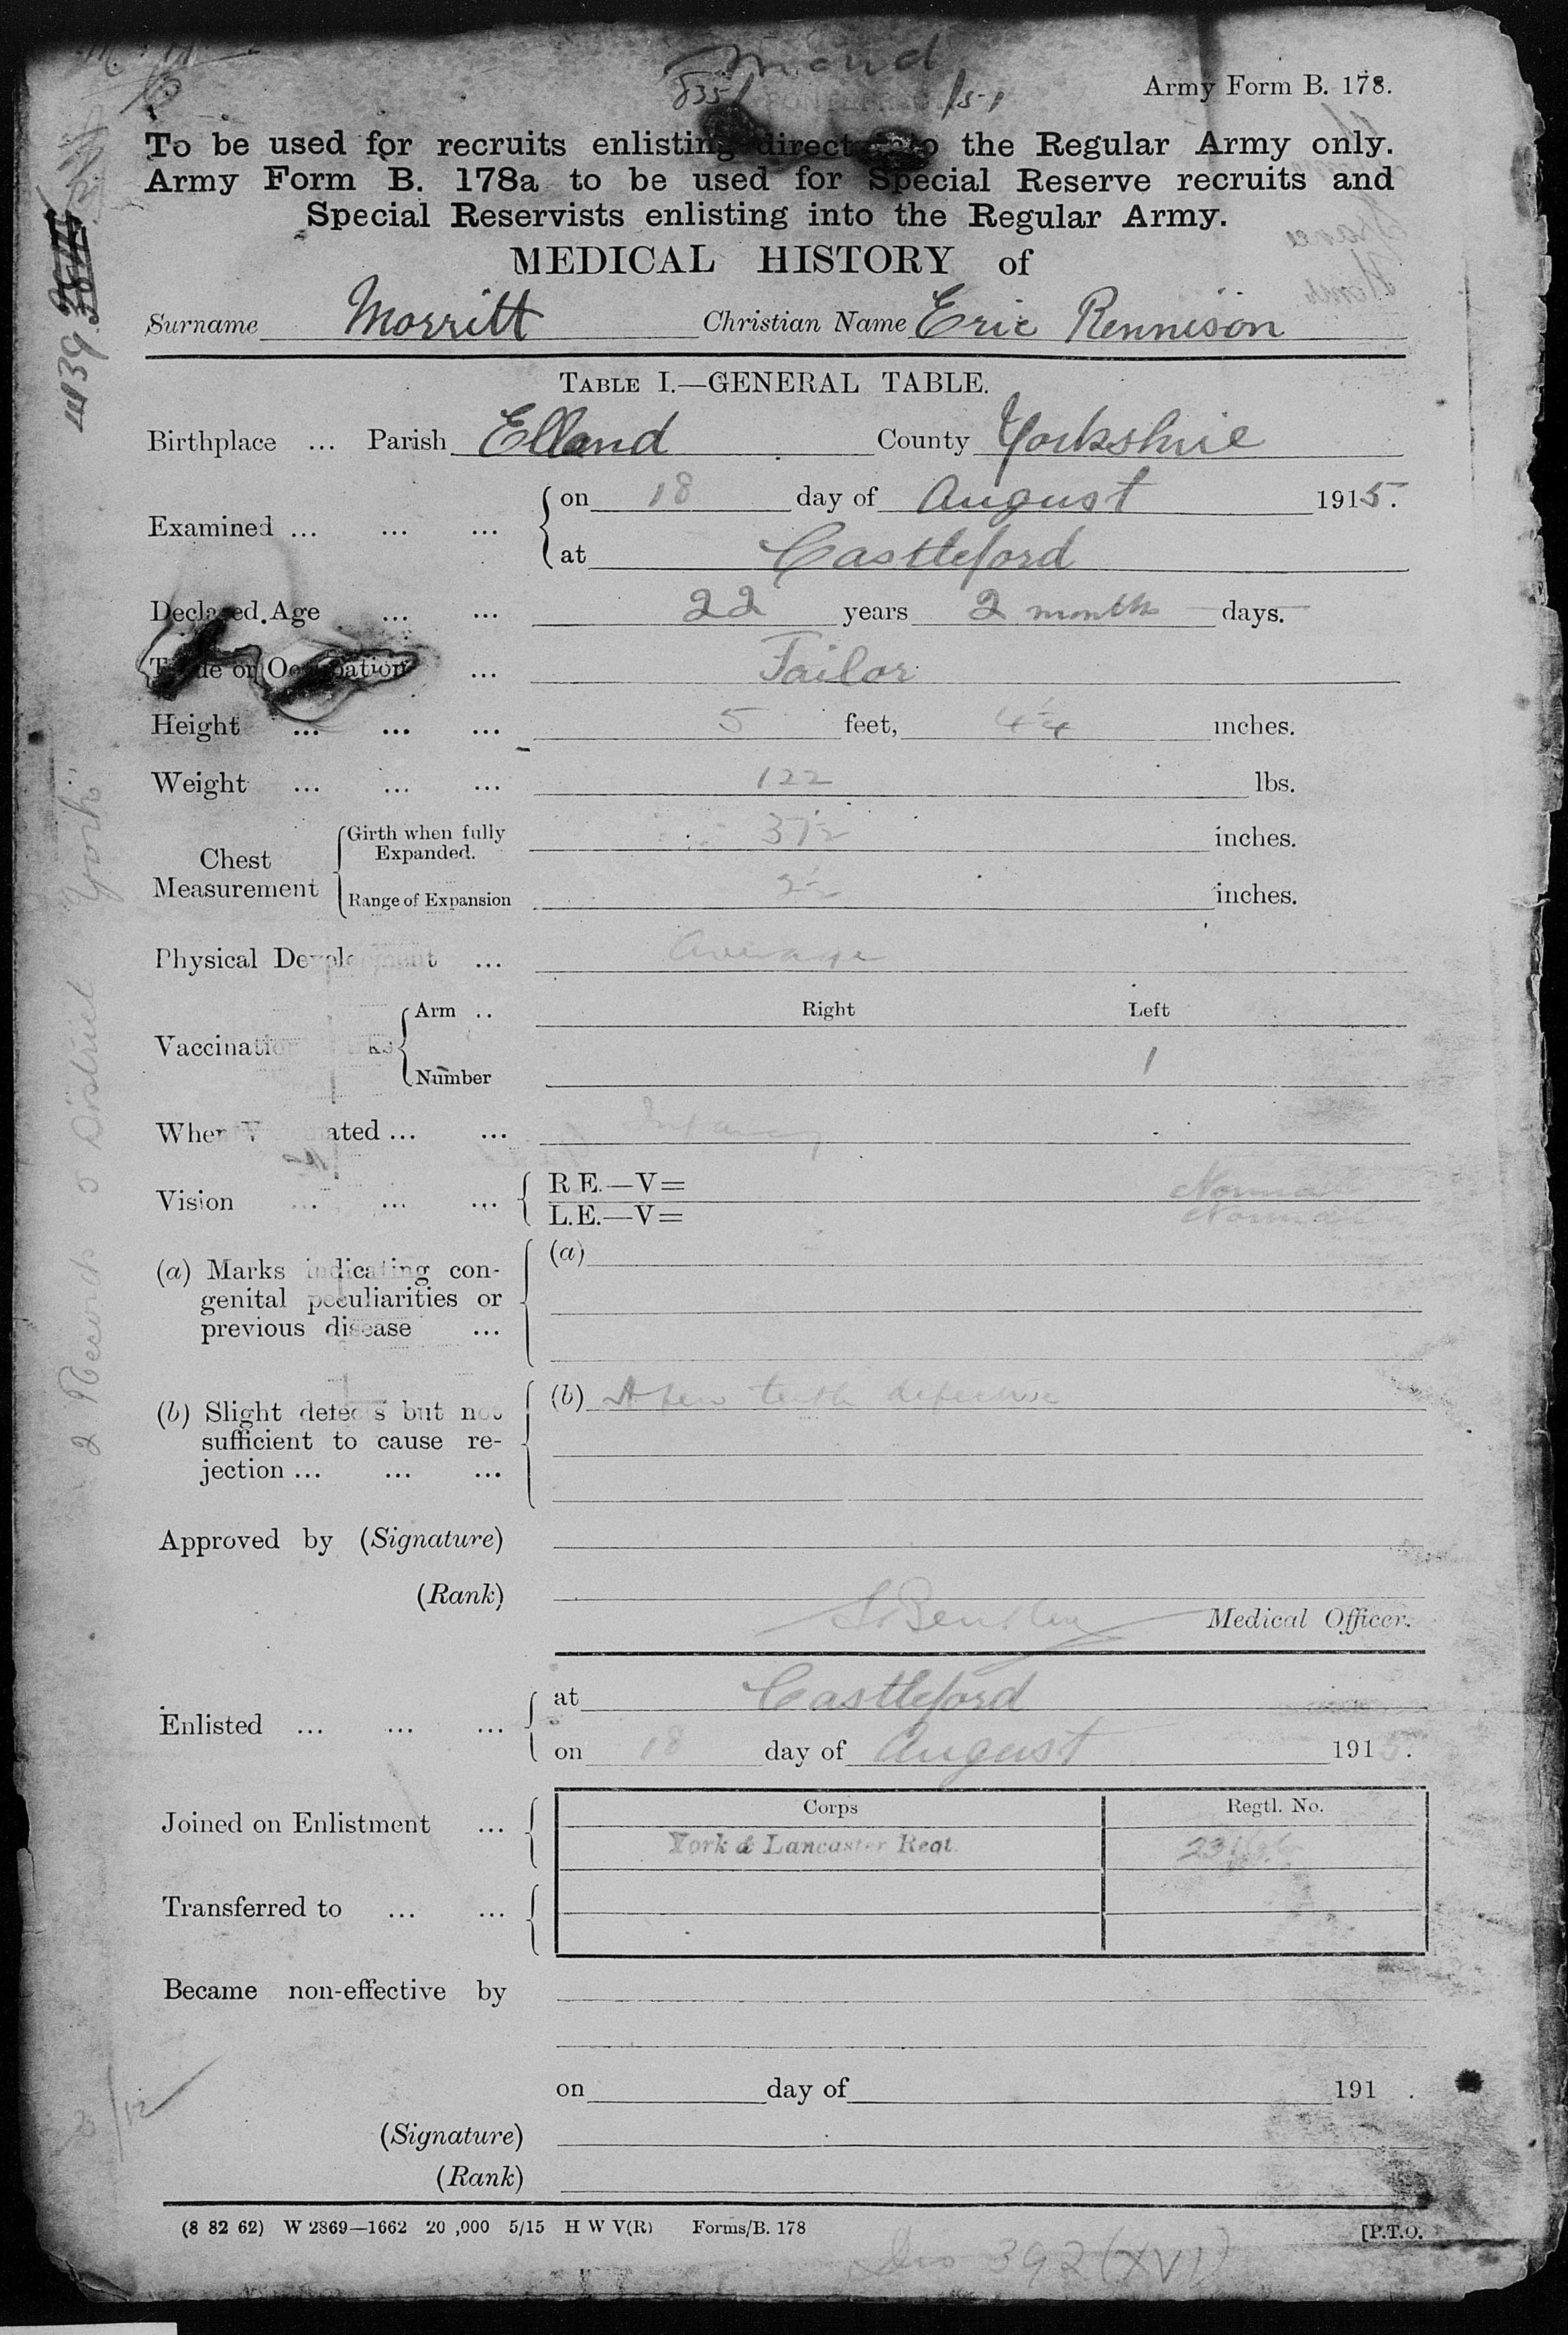 Army Form B. 178.
To be used for recruits enlisting direct into the Regular Army only.
Army Form B. 178a to be used for Special Reserve recruits and
Special Reservists enlisting into the Regular Army.
MEDICAL HISTORY of
Surname Morritt Christian Name Eric Rennison
TABLE I.—GENERAL TABLE.
Birthplace ... Parish Elland County Yorkshire
Examined ... ... ... on 18 day of August 1915.
at Castleford
Declared Age ... ... 22 years 2 months days.
Trade or Occupation ... Tailor
Height ... ... ... 5 feet, 4 1/4 inches.
Weight ... ... ... 122 lbs.
Chest Measurement
Girth when fully Expanded. 37 1/2 inches.
Range of Expansion 2 1/2 inches.
Physical Development ... Average
Vaccination Marks
Arm .. Right Left
Number 1
When Vaccinated ... ... Infancy
Vision ... ... ... R E.—V= Normal
L.E.—V= Normal
(a) Marks indicating con-
genital peculiarities or
previous disease ...
(a)
(b) Slight defects but not
sufficient to cause re-
jection ... ... ...
(b) A few teeth defective
Approved by (Signature)
(Rank)
Medical Officer.
Enlisted ... ... ... at Castleford
on 18 day of August 1915.
Corps Regtl. No.
Joined on Enlistment ... York & Lancaster Regt.
Transferred to ... ...
Became non-effective by
on day of 191 .
(Signature)
(Rank)
(8 82 62) W 2869—1662 20 ,000 5/15 H W V(R) Forms/B. 178
[P.T.O.
392 (XVI)
2 Records 5 District York